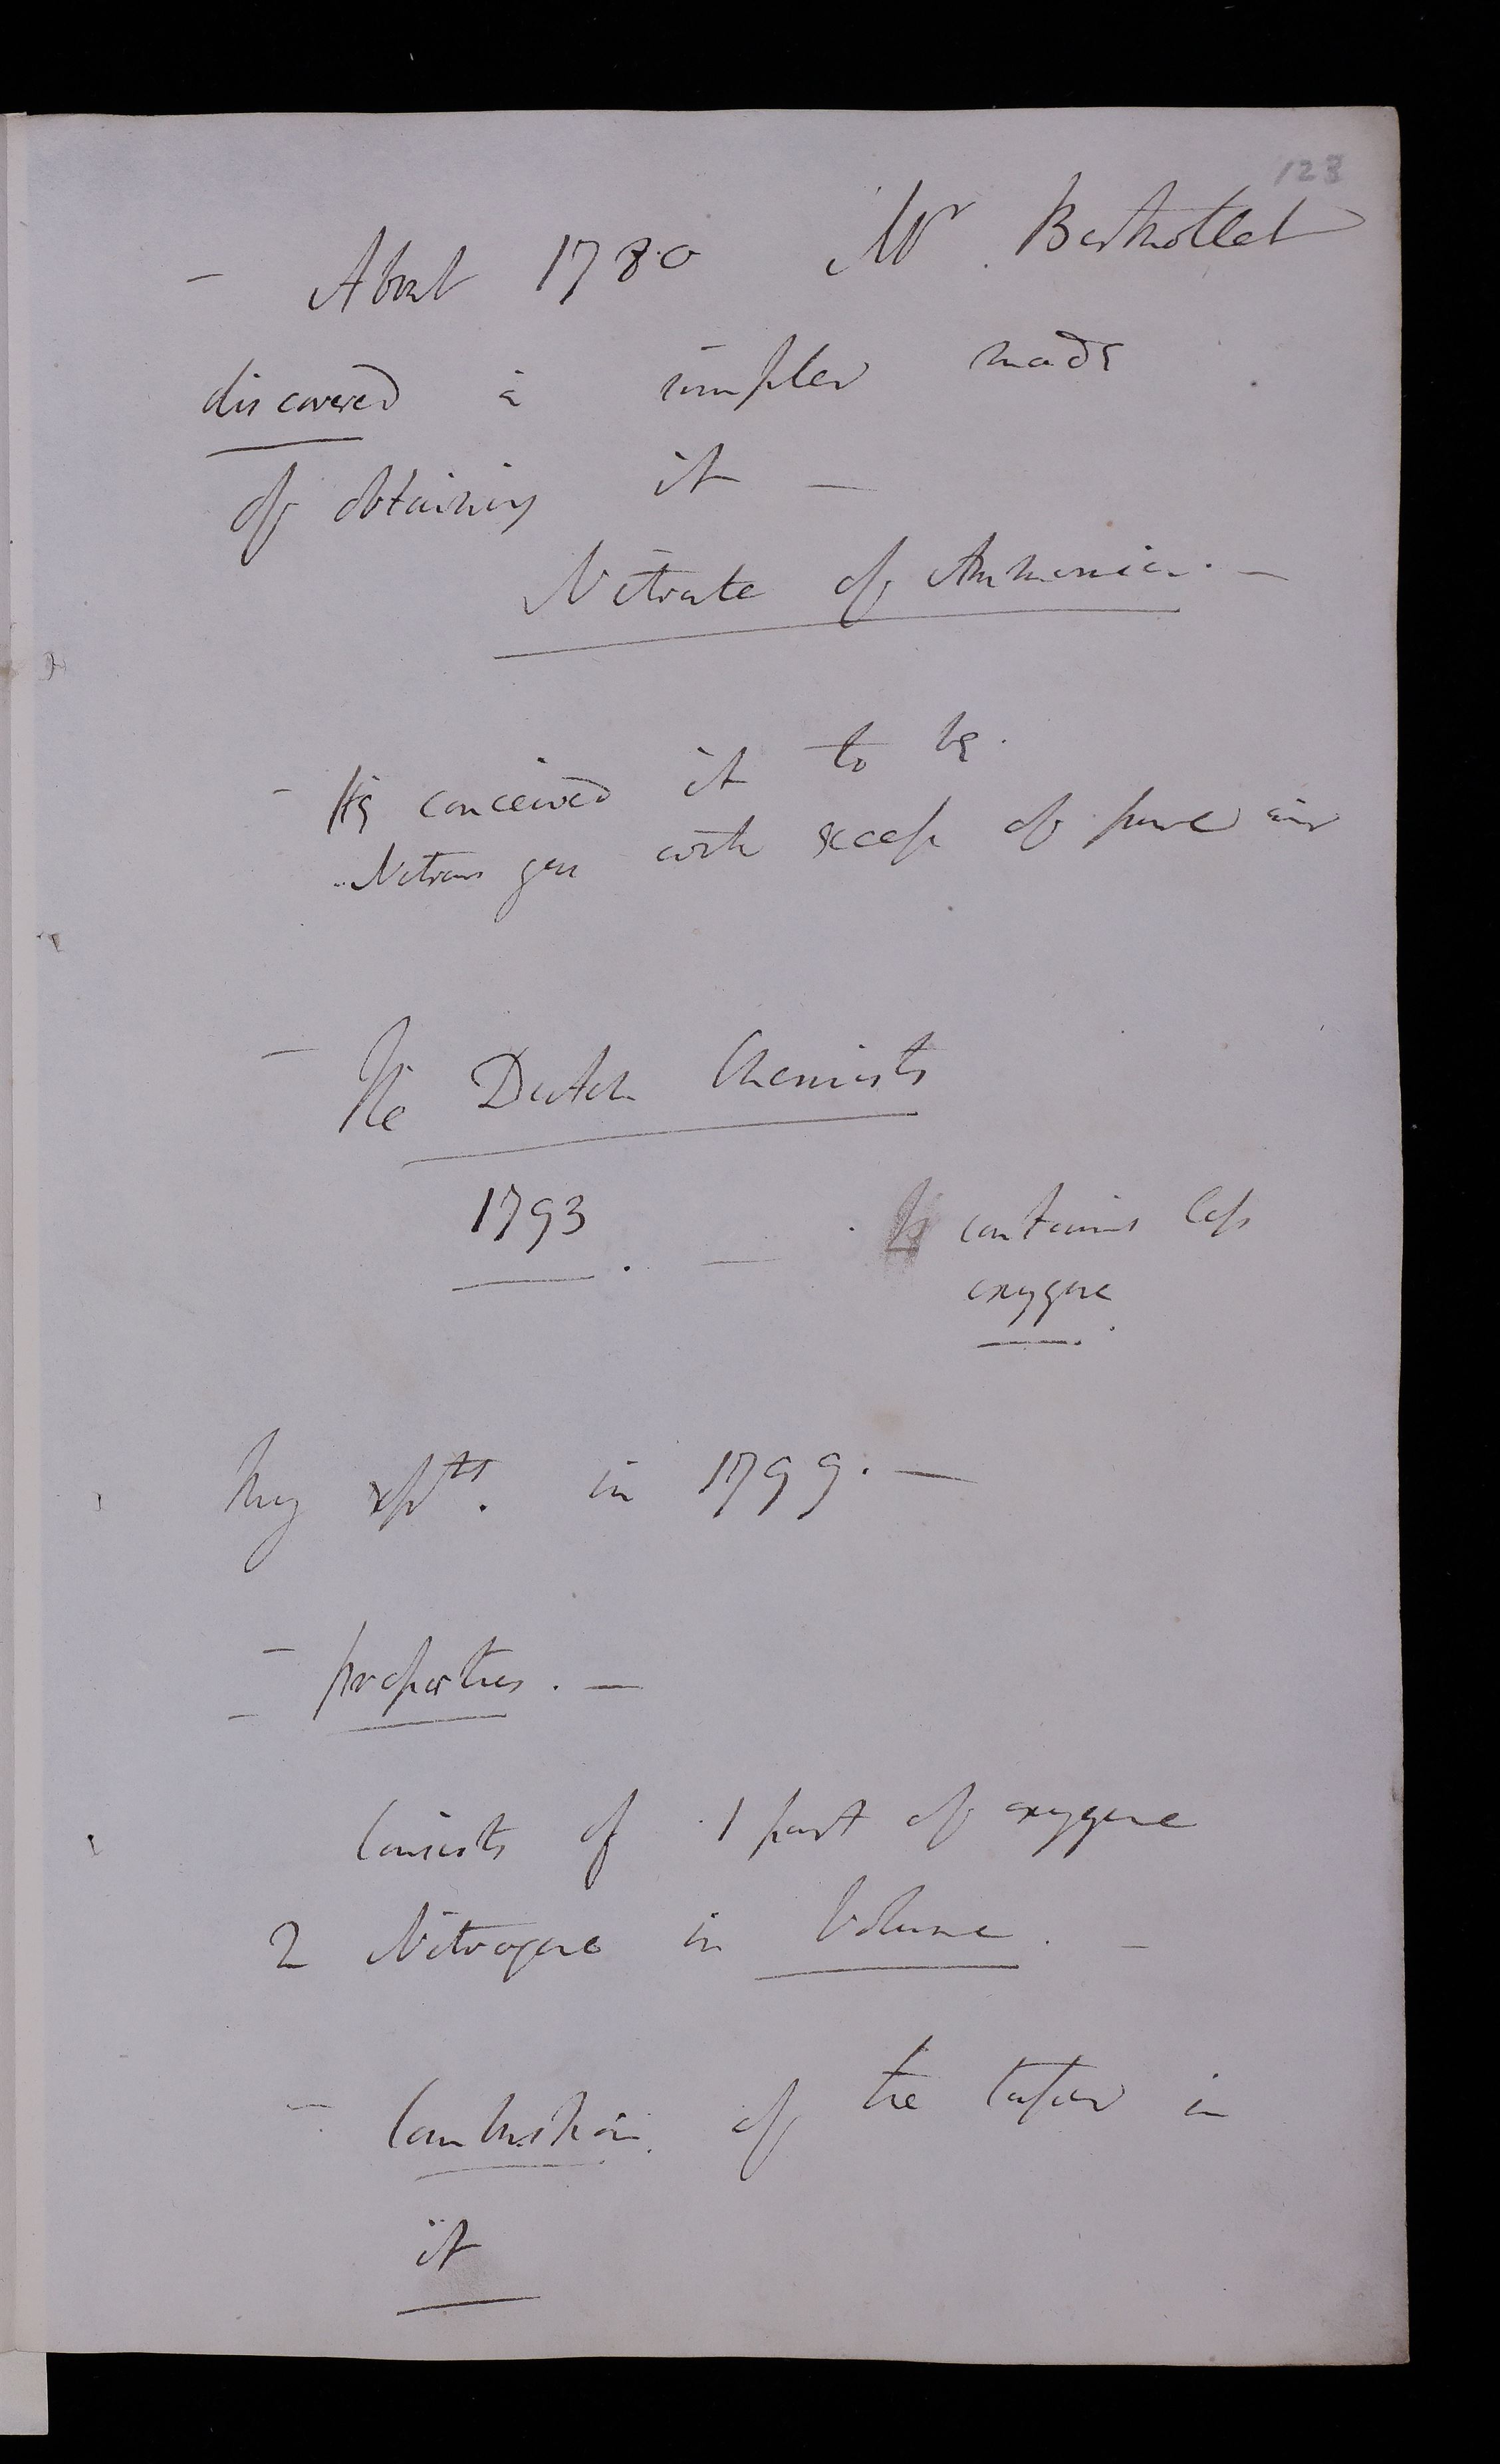 123
– About 1780 Mr Berthollet
discovered a simpler mode
of obtaining it –
Nitrate of Ammonia. –
– He conceived it to be.
Nitrous gas with excess of pure air
– The Dutch Chemists
1793. – contains less
oxygene.
My expts. in 1799. –
– properties. –
Consists of 1 part of oxygene
2 Nitrogene in Volume. –
– Combustion of the taper in
it